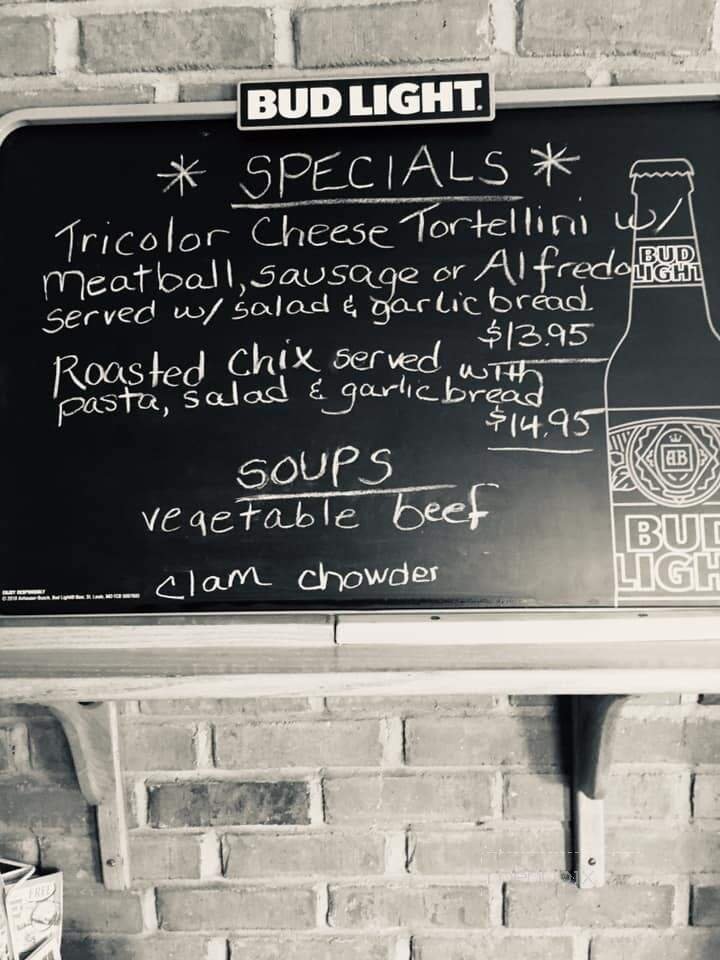 BUD LIGHT.
* SPECIALS *
Tricolor Cheese Tortellini w/
meatball, sausage or Alfredo
served w/ salad & garlic bread
$13.95
Roasted Chix served with
pasta, salad & garlic bread
$14.95
SOUPS
vegetable beef
clam chowder
BUD
LIGHT
BUD
LIGH
ENJOY RESPONSIBLY
FREE